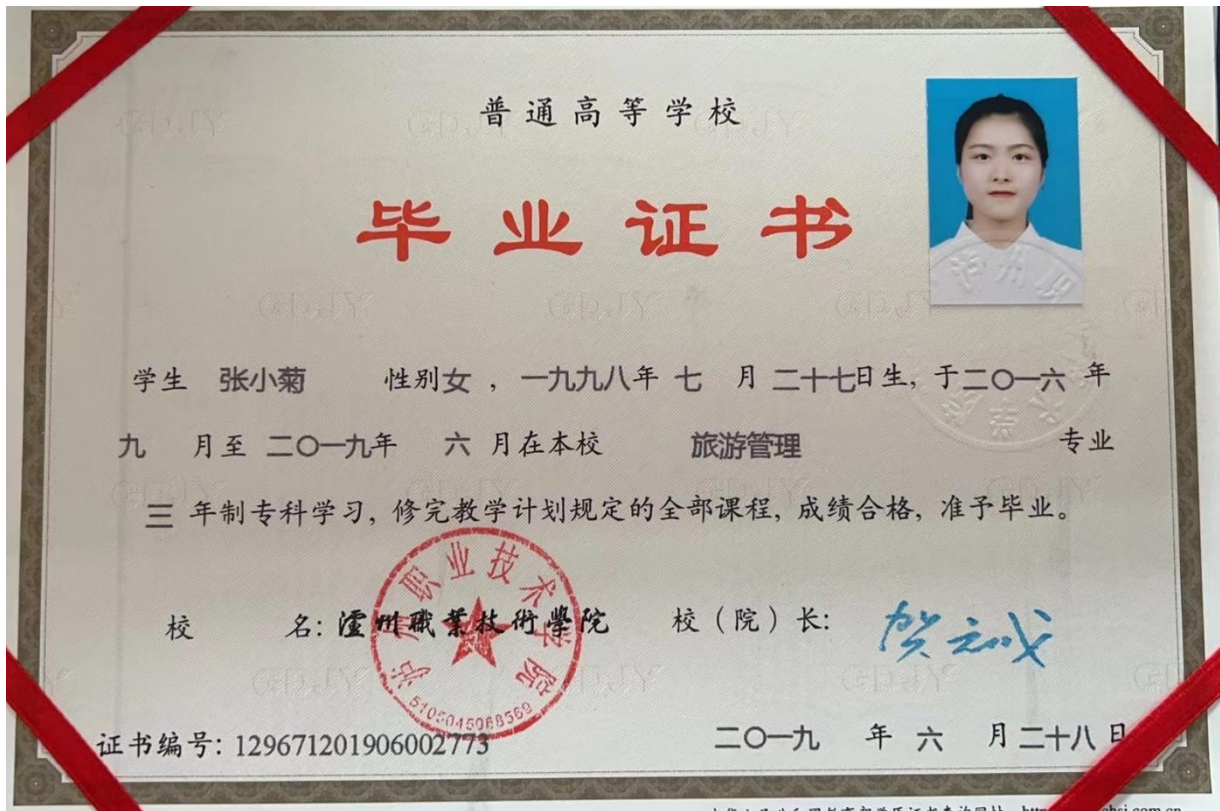 普通高等学校
毕业证书
学生 张小菊 性别女，一九九八年 七 月 二十七日生，于二〇一六 年
九 月至 二〇一九年 六 月在本校 旅游管理 专业
三 年制专科学习，修完教学计划规定的全部课程，成绩合格，准予毕业。
校 名：瀘州職業技術學院 校（院）长：
泸州职业技术学院
5105045068369
证书编号：129671201906002773
二〇一九 年 六 月 二十八 日